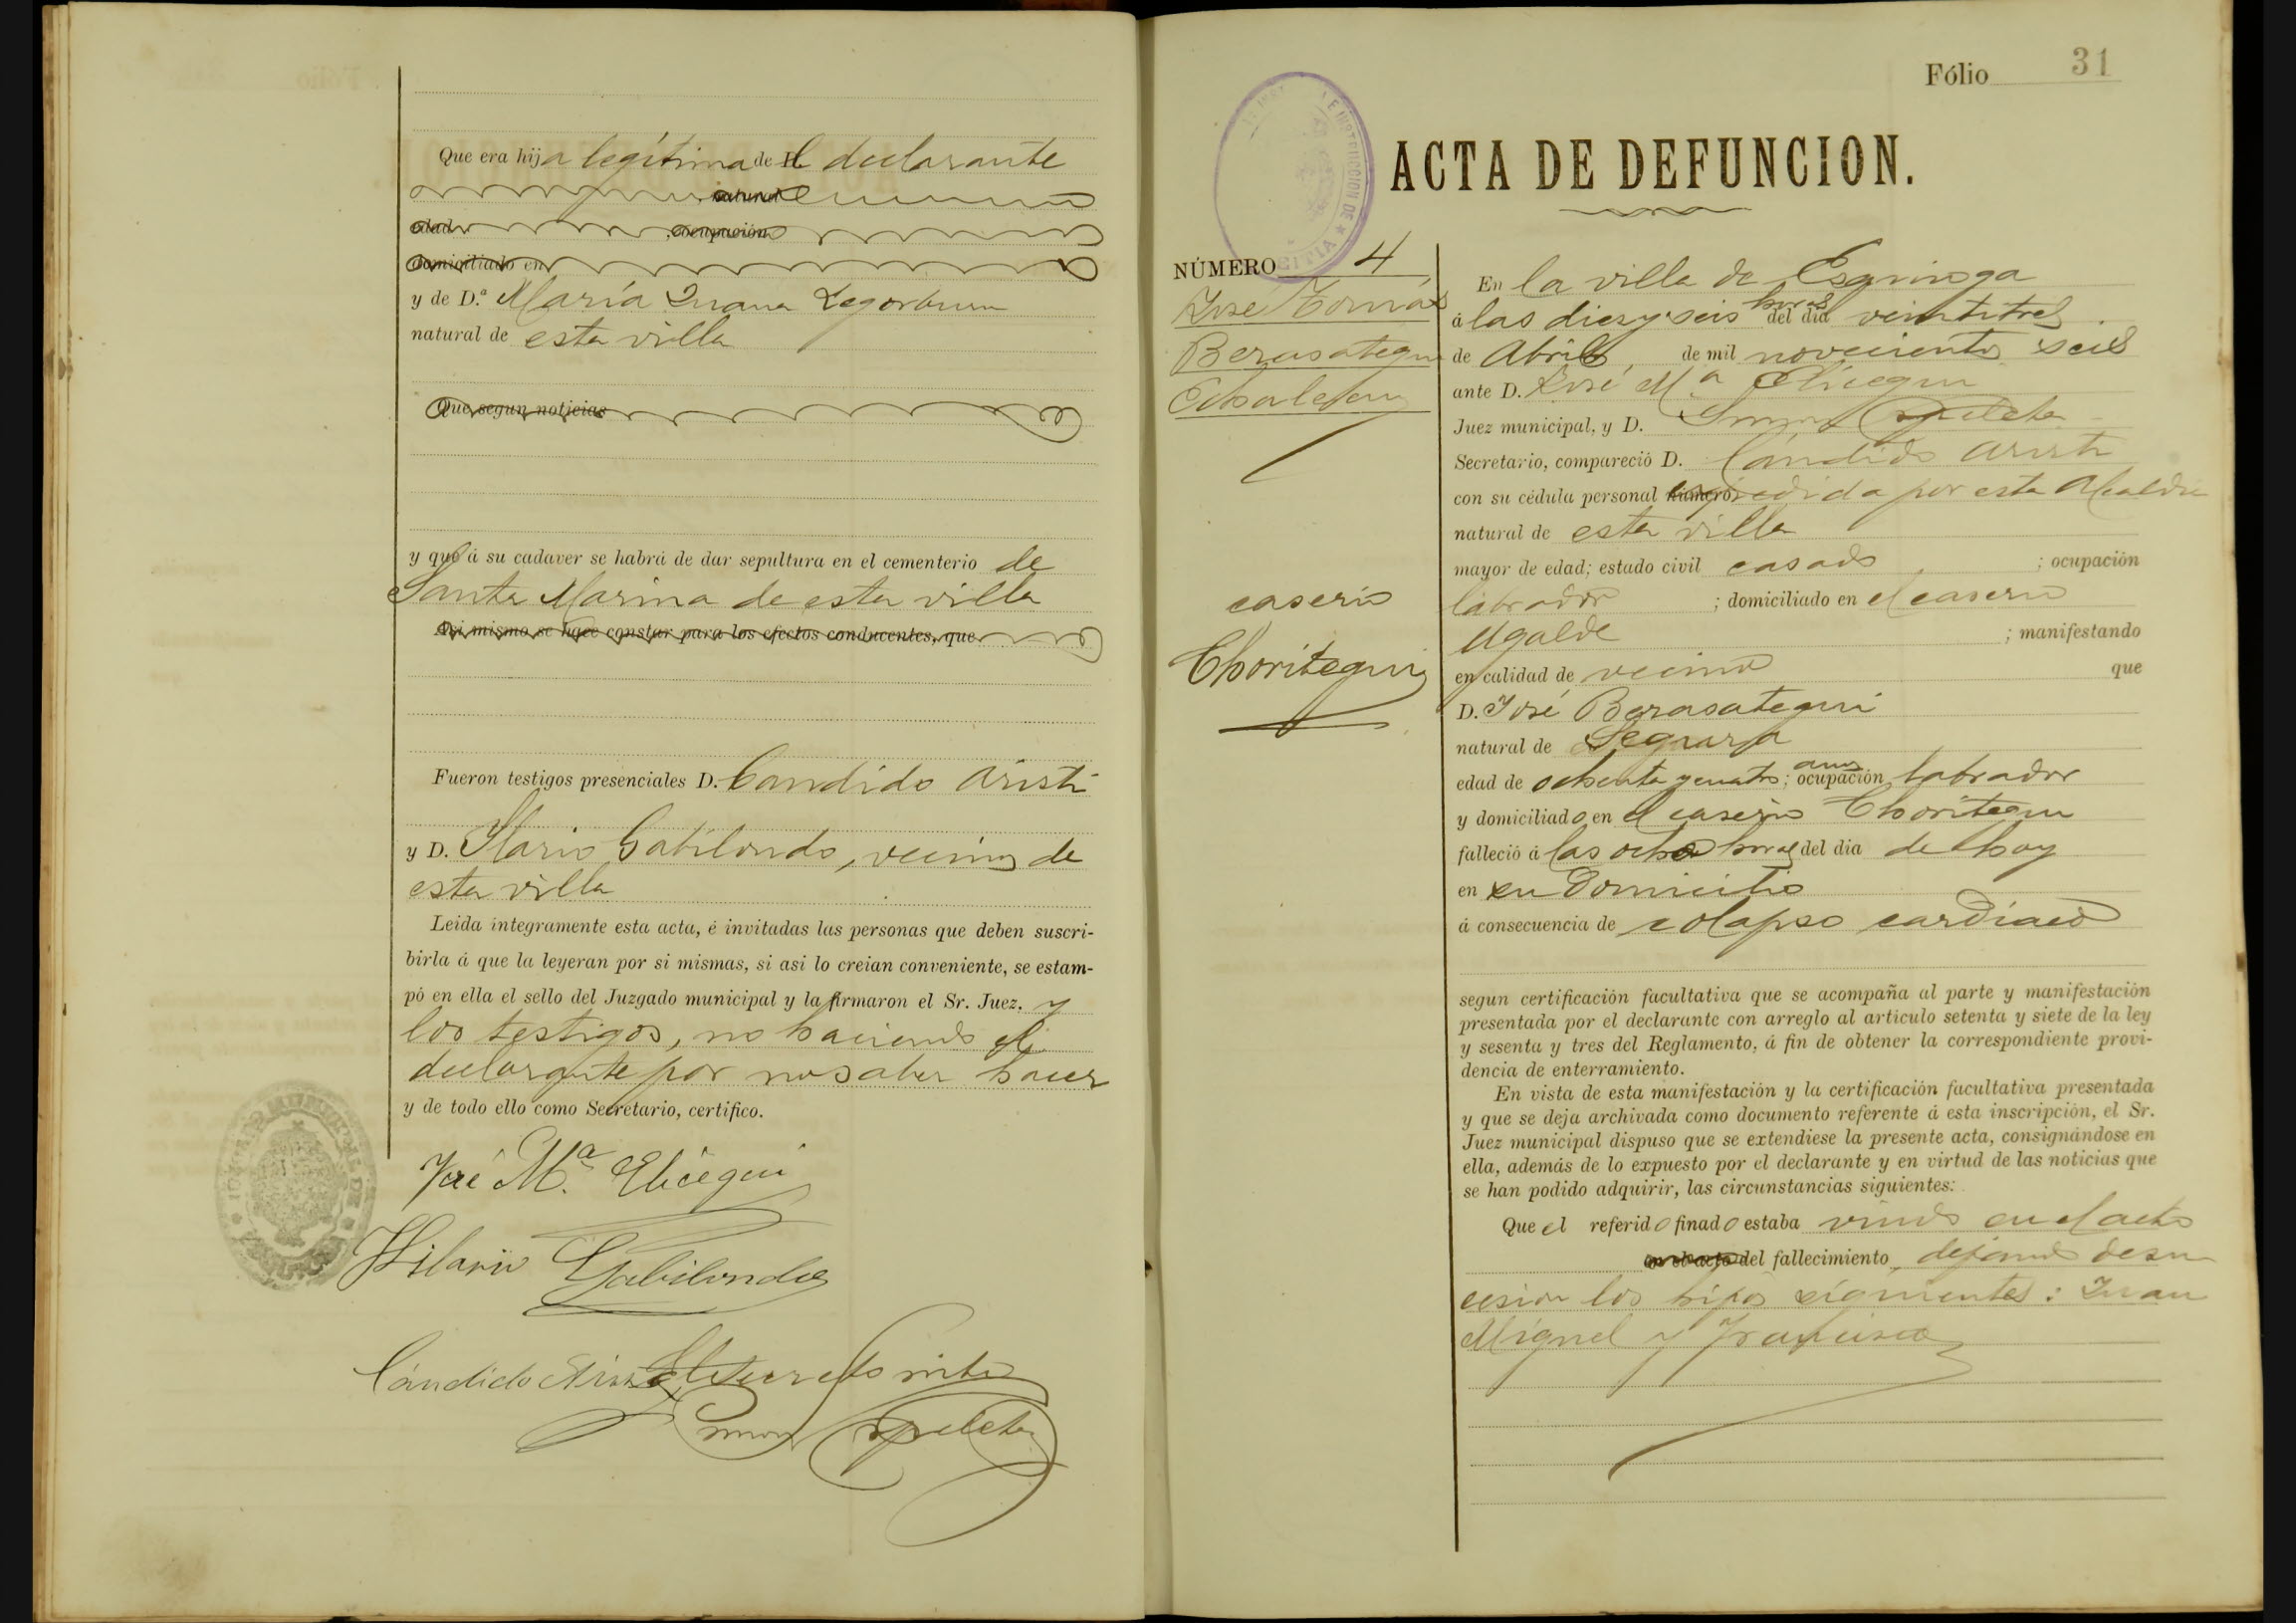 Que era hija legítima de el declarante
natural
edad ocupación
domiciliado en
y de D.ª María Juana Legorburu
natural de esta villa
Que segun noticias
y que á su cadaver se habrá de dar sepultura en el cementerio de
Santa Marina de esta villa
Asi mismo se hace constar para los efectos conducentes, que
Fueron testigos presenciales D. Candido Aristi
y D. Ilario Gabilondo, vecinos de
esta villa
Leida integramente esta acta, é invitadas las personas que deben suscri-
birla á que la leyeran por si mismas, si asi lo creian conveniente, se estam-
pó en ella el sello del Juzgado municipal y la firmaron el Sr. Juez. y
los testigos, no haciendo el
declarante por no saber hacer
y de todo ello como Secretario, certifico.
José M.ª Elicegui
Hilario Gabilondo
Cándido Aristi El Secretº
Fólio 31
ACTA DE DEFUNCION.
NÚMERO 4
José Tomás
Berasategui
caserio
Choritegui
En la villa de Esquioga
á las diez y seis horas del dia veintitres
de Abril de mil novecientos seis
ante D. José M.ª Elicegui
Juez municipal, y D.
Secretario, compareció D. Cándido Aristi
con su cédula personal número expedida por esta Alcaldia
natural de esta villa
mayor de edad; estado civil casado ; ocupación
labrador ; domiciliado en el caserio
Ugalde ; manifestando
en calidad de vecino que
D. José Berasategui
natural de Segura
edad de ochenta y cuatro años; ocupación labrador
y domiciliado en el caserio Choritegui
falleció á las ocho horas del dia de hoy
en su domicilio
á consecuencia de colapso cardiaco
segun certificación facultativa que se acompaña al parte y manifestación
presentada por el declarante con arreglo al articulo setenta y siete de la ley
y sesenta y tres del Reglamento, á fin de obtener la correspondiente provi-
dencia de enterramiento.
En vista de esta manifestación y la certificación facultativa presentada
y que se deja archivada como documento referente á esta inscripción, el Sr.
Juez municipal dispuso que se extendiese la presente acta, consignándose en
ella, además de lo expuesto por el declarante y en virtud de las noticias que
se han podido adquirir, las circunstancias siguientes:
Que el referido finado estaba viudo en el acto
en el acto del fallecimiento, dejando de su
cesion los hijos siguientes: Juan
Miguel y Francisca